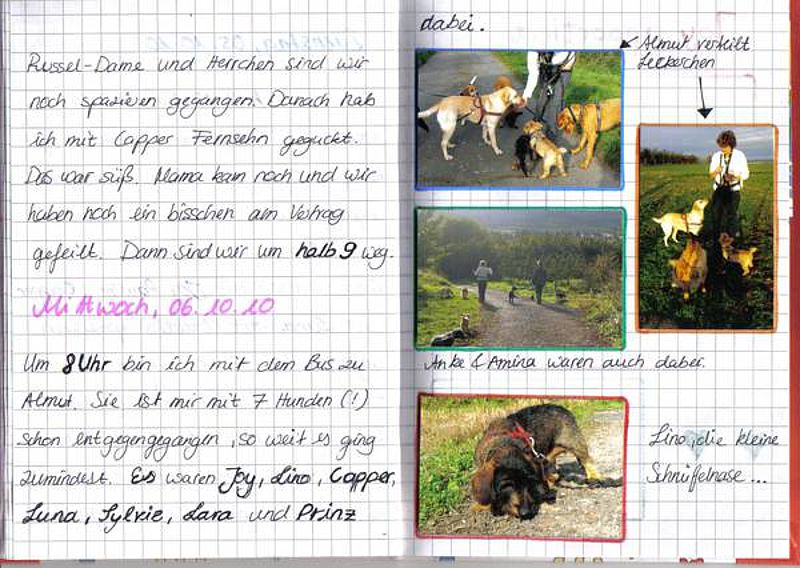 Russel-Dame und Herrchen sind wir
noch spazieren gegangen. Danach hab
ich mit Capper Fernsehn geguckt.
Das war süß. Mama kam noch und wir
haben noch ein bisschen am Vertrag
gefeilt. Dann sind wir um halb 9 weg.
Mittwoch, 06.10.10
Um 8 Uhr bin ich mit dem Bus zu
Almut. Sie ist mir mit 7 Hunden (!)
schon entgegengegangen, so weit es ging
zumindest. Es waren Joy, Lino, Capper,
Luna, Sylvie, Lara und Prinz
dabei.
Almut verteilt
Leckerchen
Anke & Amina waren auch dabei.
Lino, die kleine
Schnüffelnase ...